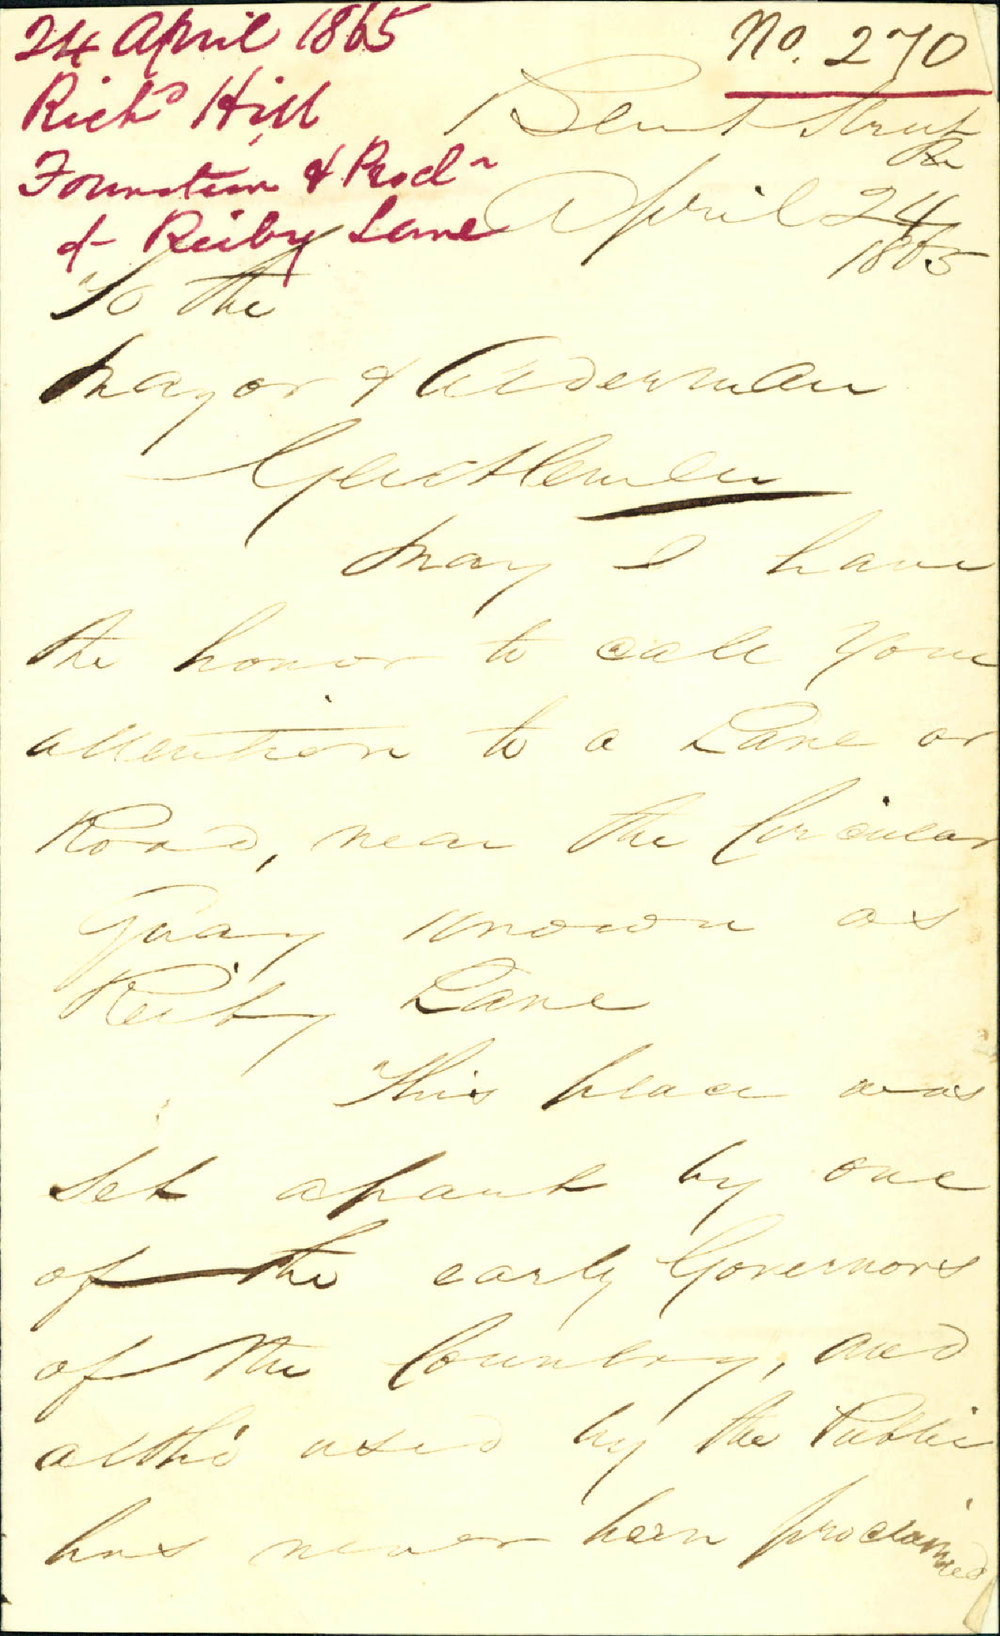 24 April 1865
Richd Hill
Formation & Procln
of Reiby Lane
No. 270
Bent Street
April 24
1865
To the
Mayor & Alderman
Gentlemen
May I have
the honor to call your
attention to a Lane or
Road, near the Circular
Quay known as
Reiby Lane
This place was
set apart by one
of the early Governors
of the Country, and
altho' used by the Public
has never been proclaimed